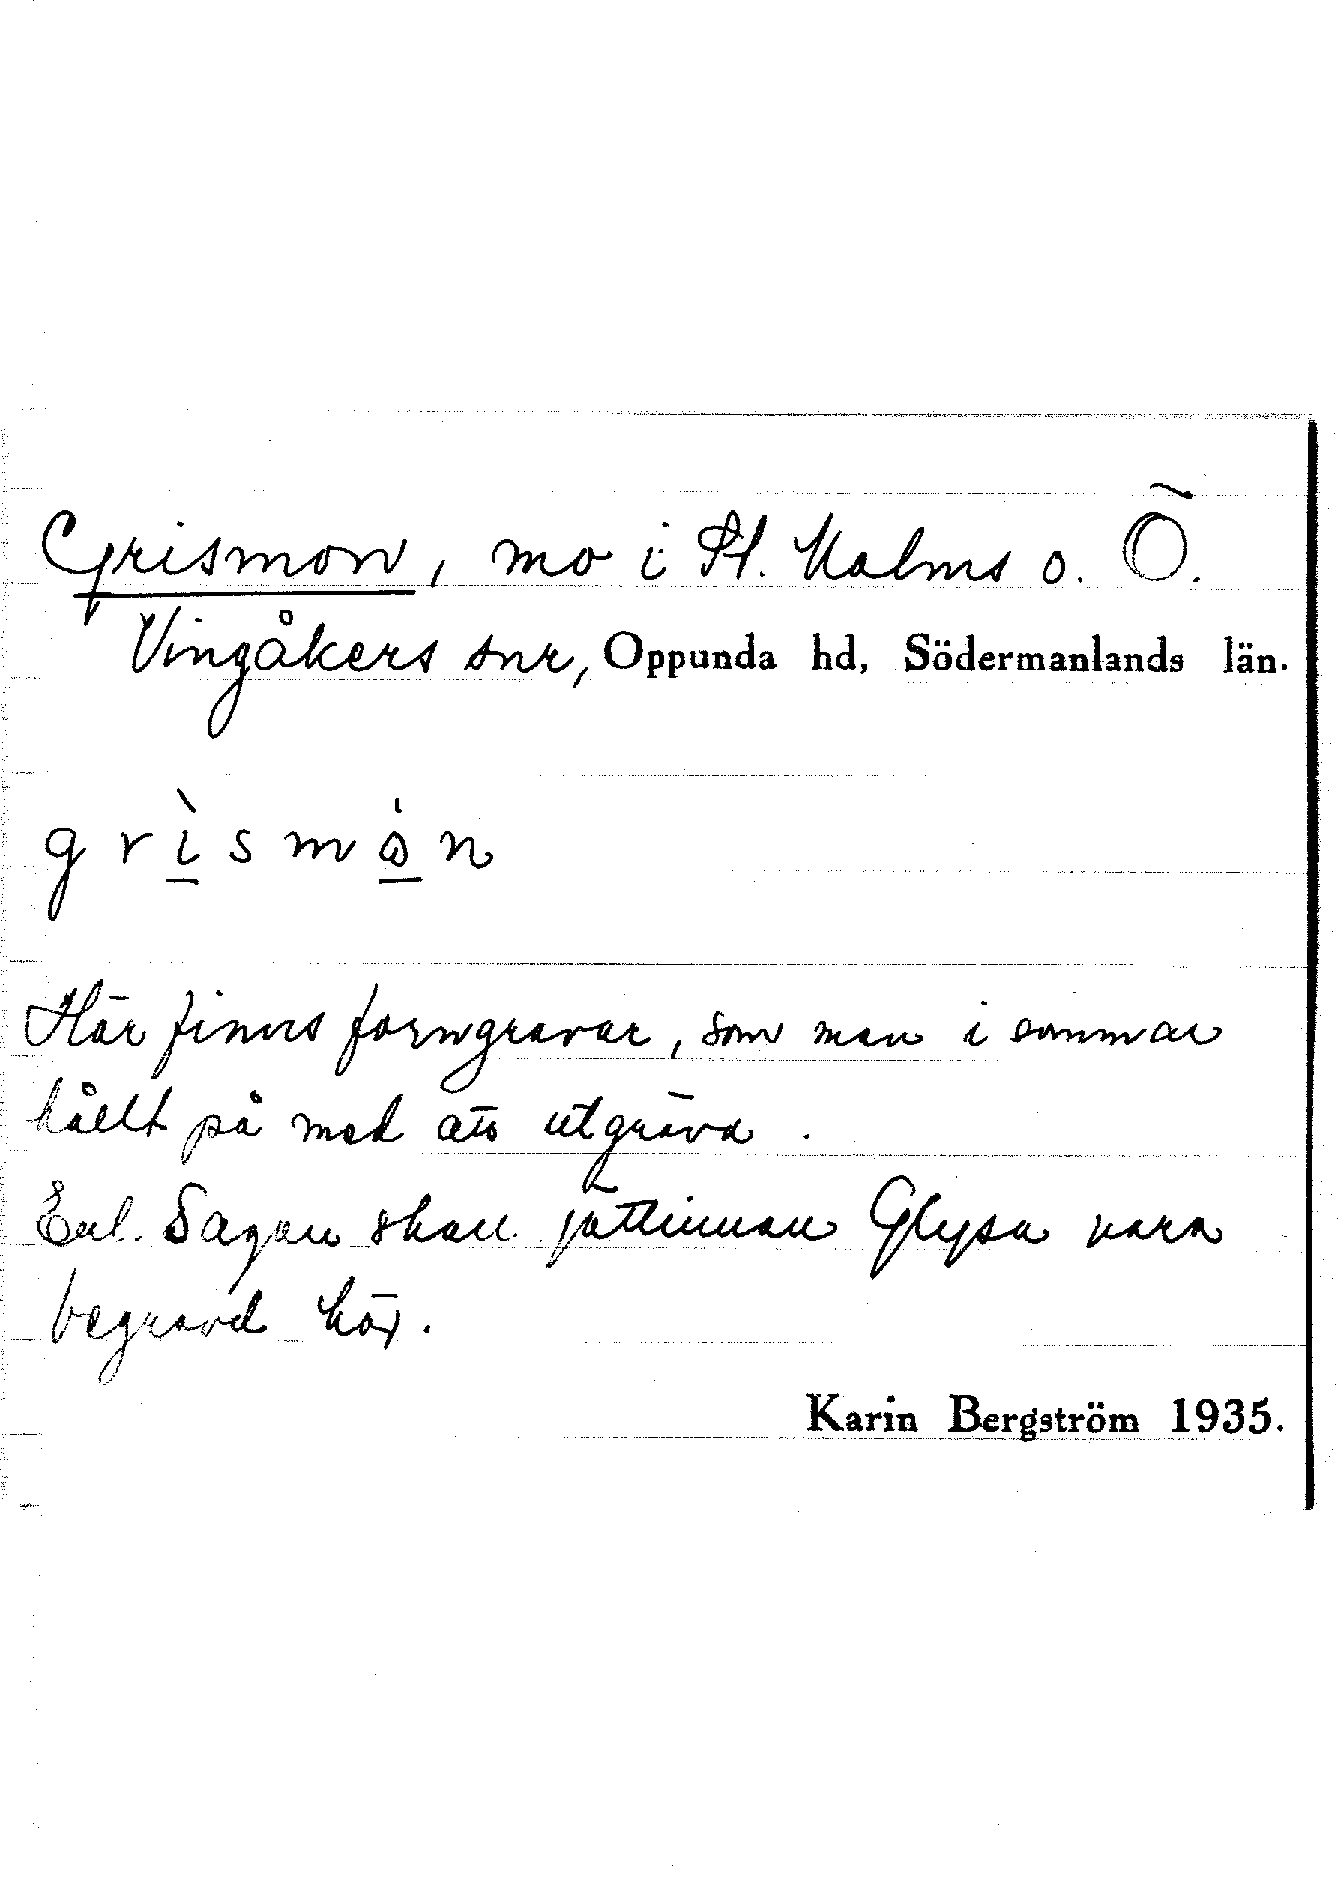 Grismon, mo i St. Malms o. Ö.
Vingåkers snr, Oppunda hd, Södermanlands län.
grìsmòn
Här finns forngravar, som man i sommar
hållt på med att utgräva.
Enl. Sagan skall jättinnan Glysa vara
begravd här.
Karin Bergström 1935.